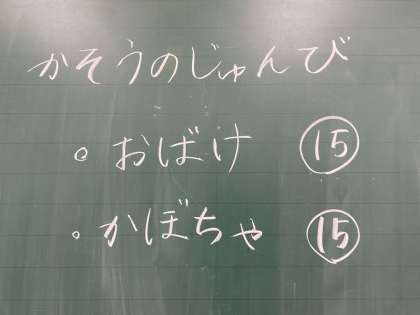 かそうのじゅんび
。おばけ ⑮
。かぼちゃ ⑮